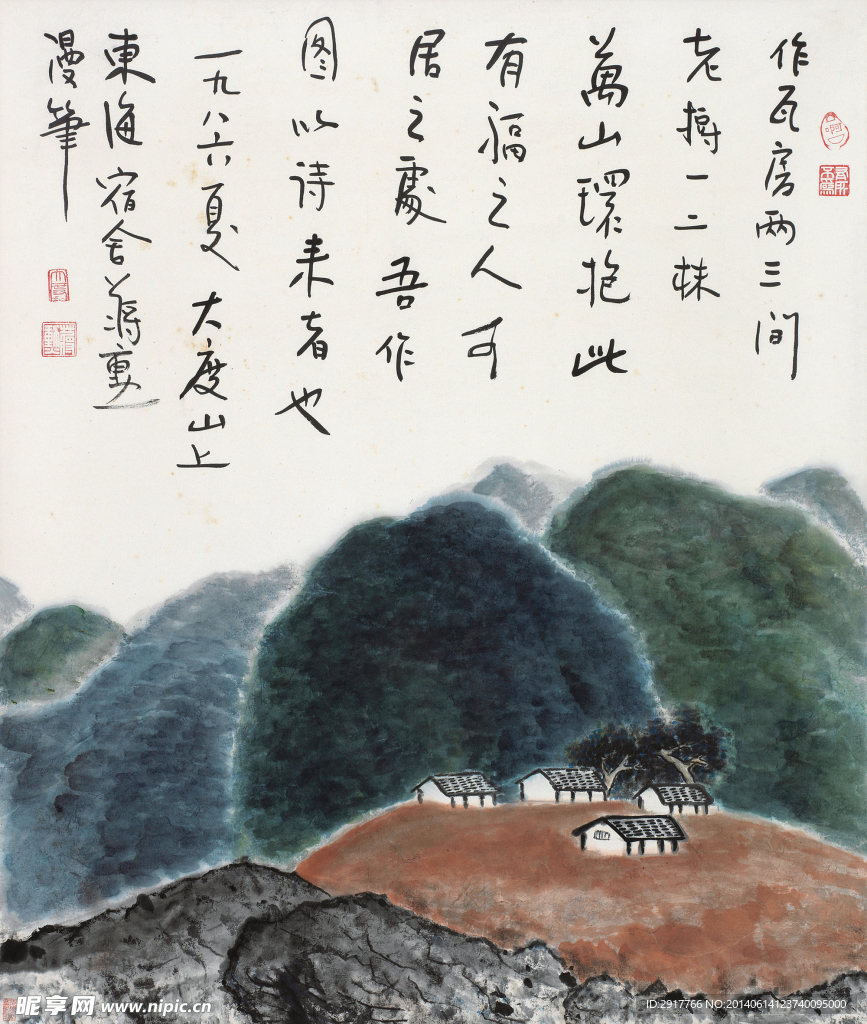 作瓦房两三间
老樹一二株
萬山環抱此
有福之人可
居之處吾作
图以诗来者也
一九八六夏大度山上
東海宿舍蔣勳
漫筆
昵享网 www.nipic.cn
ID:2917766 NO:20140614123740095000